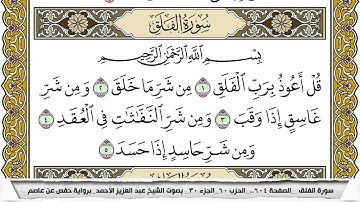 سُورَةُ الْفَلَقِ
بِسْمِ اللَّهِ الرَّحْمَٰنِ الرَّحِيمِ
قُلْ أَعُوذُ بِرَبِّ الْفَلَقِ ١ مِن شَرِّ مَا خَلَقَ ٢ وَمِن شَرِّ
غَاسِقٍ إِذَا وَقَبَ ٣ وَمِن شَرِّ النَّفَّاثَاتِ فِي الْعُقَدِ ٤
وَمِن شَرِّ حَاسِدٍ إِذَا حَسَدَ ٥
سورة الفلق _الصفحة ٦٠٤_ الحزب ٦٠_الجزء ٣٠_ بصوت الشيخ عبد العزيز الأحمد_ برواية حفص عن عاصم